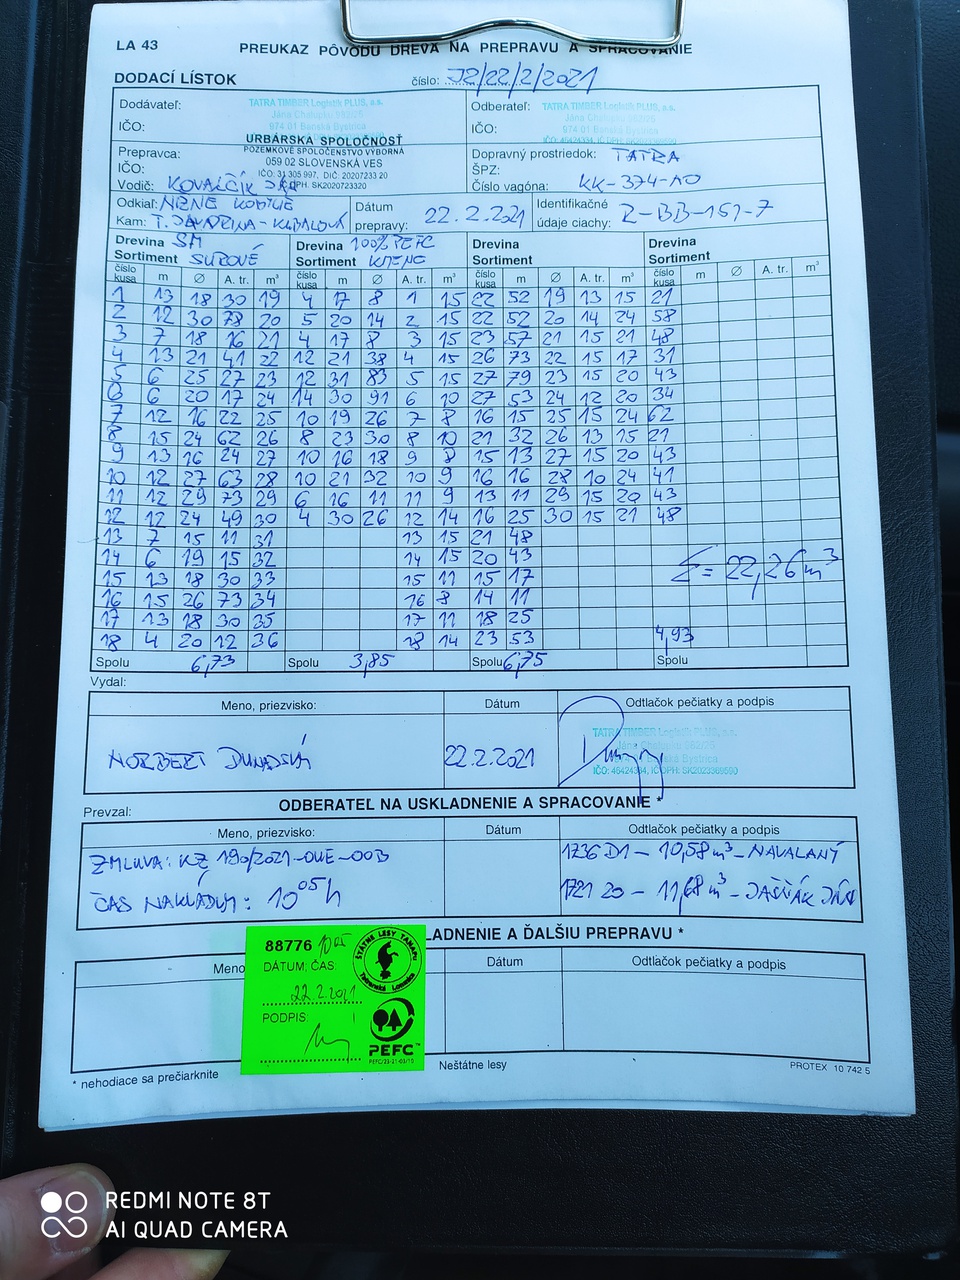 LA 43
PREUKAZ PÔVODU DREVA NA PREPRAVU A SPRACOVANIE
DODACÍ LÍSTOK
číslo: J2/22/2/2021
Dodávateľ:
TATRA TIMBER Logistik PLUS, a.s.
974 01 Banská Bystrica
IČO:
Odberateľ:
TATRA TIMBER Logistik PLUS, a.s.
974 01 Banská Bystrica
IČO:
URBÁRSKA SPOLOČNOSŤ
POZEMKOVÉ SPOLOČENSTVO VÝBORNÁ
059 02 SLOVENSKÁ VES
IČO: 31 305 997, DIČ: 20207233 20
IČ DPH: SK2020723320
Prepravca:
IČO:
Vodič: KOVALČÍK JÁN
Dopravný prostriedok: TATRA
ŠPZ:
Číslo vagóna: KK-374-AO
Odkiaľ: NIŽNÉ
Kam: T.
Dátum prepravy: 22.2.2021
Identifikačné údaje ciachy: Z-BB-151-7
Drevina SM
Sortiment SUROVÉ
Drevina 100% PEFC
Sortiment KMENE
Drevina
Sortiment
Drevina
Sortiment
číslo kusa m Ø A. tr. m³ číslo kusa m Ø A. tr. m³ číslo kusa m Ø A. tr. m³ číslo kusa m Ø A. tr. m³
1 13 18 30 19 4 17 8 1 15 22 52 19 13 15 21
2 12 30 78 20 5 20 14 2 15 22 52 20 14 24 58
3 7 18 16 21 4 17 8 3 15 23 57 21 15 21 48
4 13 21 41 22 12 21 38 4 15 26 73 22 15 17 31
5 6 25 27 23 12 31 83 5 15 27 79 23 15 20 43
6 6 20 17 24 14 30 91 6 10 27 53 24 12 20 34
7 12 16 22 25 10 19 26 7 8 16 15 25 15 24 62
8 15 24 62 26 8 23 30 8 10 21 32 26 13 15 21
9 13 16 24 27 10 16 18 9 8 15 13 27 15 20 43
10 12 27 63 28 10 21 32 10 9 16 16 28 10 24 41
11 12 29 73 29 6 16 11 11 9 13 11 29 15 20 43
12 12 24 49 30 4 30 26 12 14 16 25 30 15 21 48
13 7 15 11 31 13 15 21 48
14 6 19 15 32 14 15 20 43
15 13 18 30 33 15 11 15 17
16 15 26 73 34 16 8 14 11
17 13 18 30 35 17 11 18 25
18 4 20 12 36 18 14 23 53
Σ = 22,26 m³
Spolu 6,73 Spolu 3,85 Spolu 6,75 Spolu 4,93
Vydal:
Meno, priezvisko: Dátum Odtlačok pečiatky a podpis
NORBERT DUNAJSKÝ 22.2.2021
TATRA TIMBER Logistik PLUS, a.s.
Banská Bystrica
IČO: 46424384, IČ DPH: SK2023369590
ODBERATEL NA USKLADNENIE A SPRACOVANIE *
Prevzal:
Meno, priezvisko: Dátum Odtlačok pečiatky a podpis
ZMLUVA: KZ 190/2021-OUE-003
ČAS NAKLÁDKY: 10⁰⁵ h
1736 D1 – 10,58 m³ – NAVALANÝ
1721 20 – 11,68 m³ – JAŠŠÁK JÁN
LADNENIE A ĎALŠIU PREPRAVU *
Meno Dátum Odtlačok pečiatky a podpis
88776 1005
DÁTUM, ČAS:
22.2.2021
PODPIS:
ŠTÁTNE LESY TANAPU
Tatranská Lomnica
PEFC™
PEFC/23-21-03/10
* nehodiace sa prečiarknite
Neštátne lesy
PROTEX 10 742 5
REDMI NOTE 8T
AI QUAD CAMERA